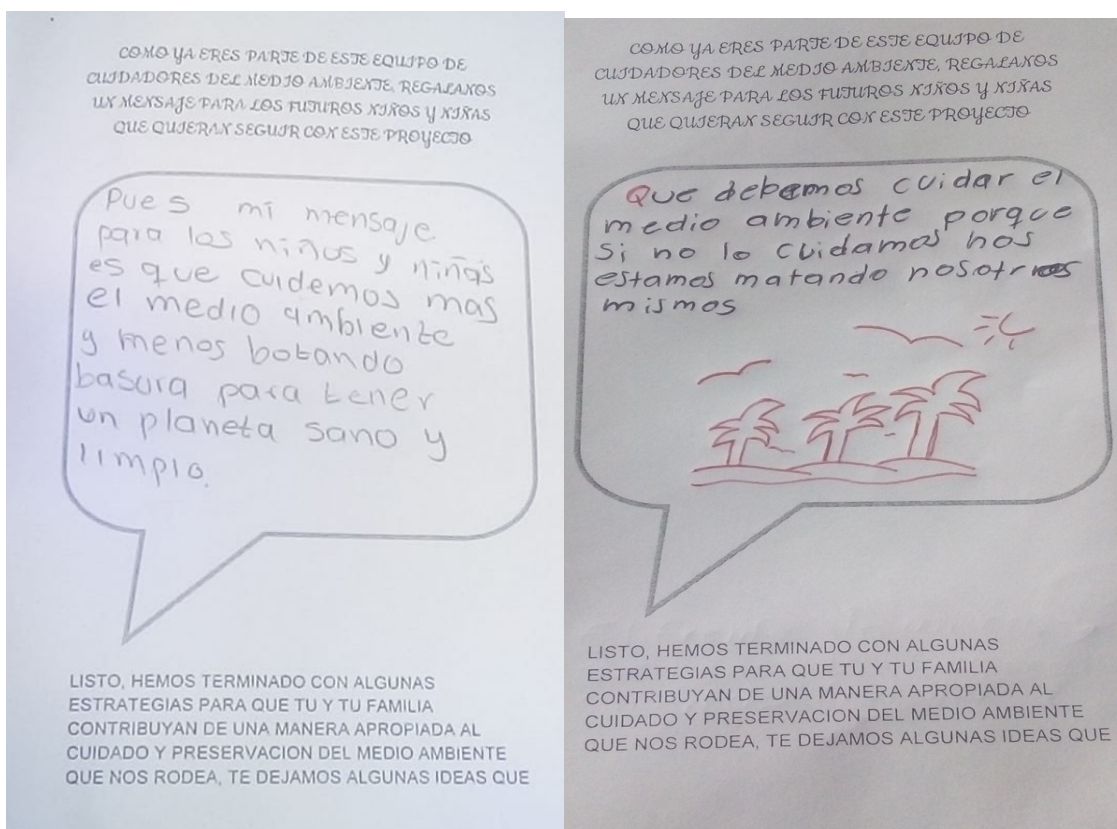 COMO YA ERES PARTE DE ESTE EQUIPO DE
CUIDADORES DEL MEDIO AMBIENTE, REGALANOS
UN MENSAJE PARA LOS FUTUROS NIÑOS Y NIÑAS
QUE QUIERAN SEGUIR CON ESTE PROYECTO
Pues mi mensaje
para los niños y niñas
es que cuidemos mas
el medio ambiente
y menos botando
basura para tener
un planeta sano y
limpio.
LISTO, HEMOS TERMINADO CON ALGUNAS
ESTRATEGIAS PARA QUE TU Y TU FAMILIA
CONTRIBUYAN DE UNA MANERA APROPIADA AL
CUIDADO Y PRESERVACION DEL MEDIO AMBIENTE
QUE NOS RODEA, TE DEJAMOS ALGUNAS IDEAS QUE
COMO YA ERES PARTE DE ESTE EQUIPO DE
CUIDADORES DEL MEDIO AMBIENTE, REGALANOS
UN MENSAJE PARA LOS FUTUROS NIÑOS Y NIÑAS
QUE QUIERAN SEGUIR CON ESTE PROYECTO
Que debemos cuidar el
medio ambiente porque
si no lo cuidamos nos
estamos matando nosotros
mismos
LISTO, HEMOS TERMINADO CON ALGUNAS
ESTRATEGIAS PARA QUE TU Y TU FAMILIA
CONTRIBUYAN DE UNA MANERA APROPIADA AL
CUIDADO Y PRESERVACION DEL MEDIO AMBIENTE
QUE NOS RODEA, TE DEJAMOS ALGUNAS IDEAS QUE